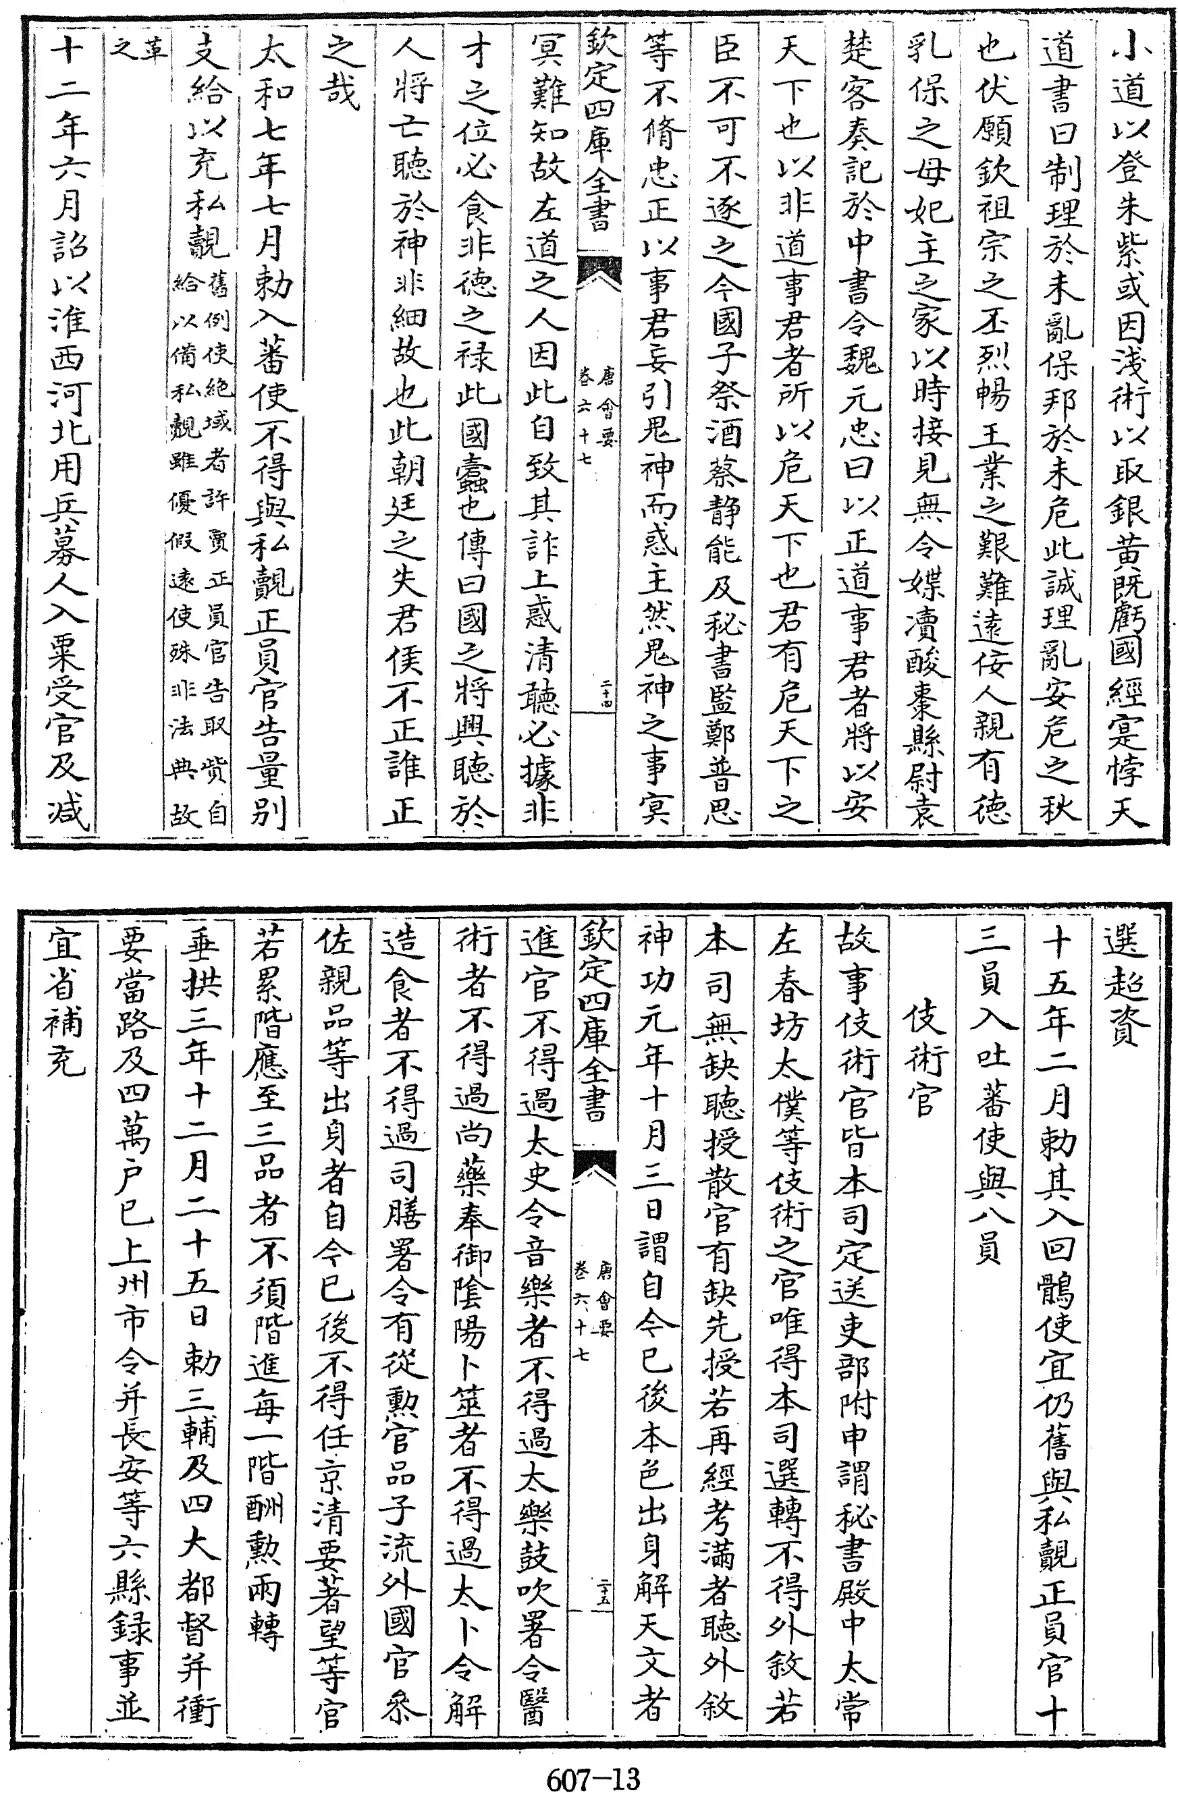 小道以登朱紫或因淺術以取銀黄既虧國經寔悖天
道書曰制理於未亂保邦於未危此誠理亂安危之秋
也伏願欽祖宗之丕烈暢王業之艱難遠佞人親有德
乳保之母妃主之家以時接見無令媟瀆酸棗縣尉袁
楚客奏記於中書令魏元忠曰以正道事君者將以安
天下也以非道事君者所以危天下也君有危天下之
臣不可不逐之今國子祭酒蔡静能及秘書監鄭普思
等不脩忠正以事君妄引鬼神而惑主然鬼神之事冥
欽定四庫全書
唐會要
卷六十七
二十四
冥難知故左道之人因此自致其詐上惑清聽必據非
才之位必食非德之禄此國蠹也傳曰國之將興聽於
人將亡聽於神非細故也此朝廷之失君侯不正誰正
之哉
太和七年七月勅入蕃使不得與私覿正員官告量别
支給以充私覿
舊例使絶域者許賣正員官告取貲自
給以備私覿雖優假遠使殊非法典故
革
之
十二年六月詔以淮西河北用兵募人入粟受官及减
選超資
十五年二月勅其入回鶻使宜仍舊與私覿正員官十
三員入吐蕃使與八員
伎術官
故事伎術官皆本司定送吏部附申謂秘書殿中太常
左春坊太僕等伎術之官唯得本司選轉不得外敘若
本司無缺聽授散官有缺先授若再經考滿者聽外敘
神功元年十月三日謂自今已後本色出身解天文者
欽定四庫全書
唐會要
卷六十七
二十五
進官不得過太史令音樂者不得過太樂鼓吹署令醫
術者不得過尚藥奉御陰陽卜筮者不得過太卜令解
造食者不得過司膳署令有從勲官品子流外國官叅
佐親品等出身者自今已後不得任京清要著望等官
若累階應至三品者不須階進每一階酬勲兩轉
垂拱三年十二月二十五日勅三輔及四大都督并衝
要當路及四萬户已上州市令并長安等六縣録事並
宜省補充
607-13